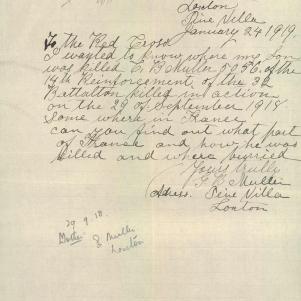 Loxton
Pine Villa
January 24 1919
To the Red Cross
I wanted to know where my son
was killed of the
14th Reinforcement of the 32
Battalion killed in action
on the 29 of September 1918
some where in France
can you find out what part
of France and how he was
killed and where burried
Yours truly
Muller
Adress. Pine Villa
Loxton
29.9.18
Mother Muller
Loxton